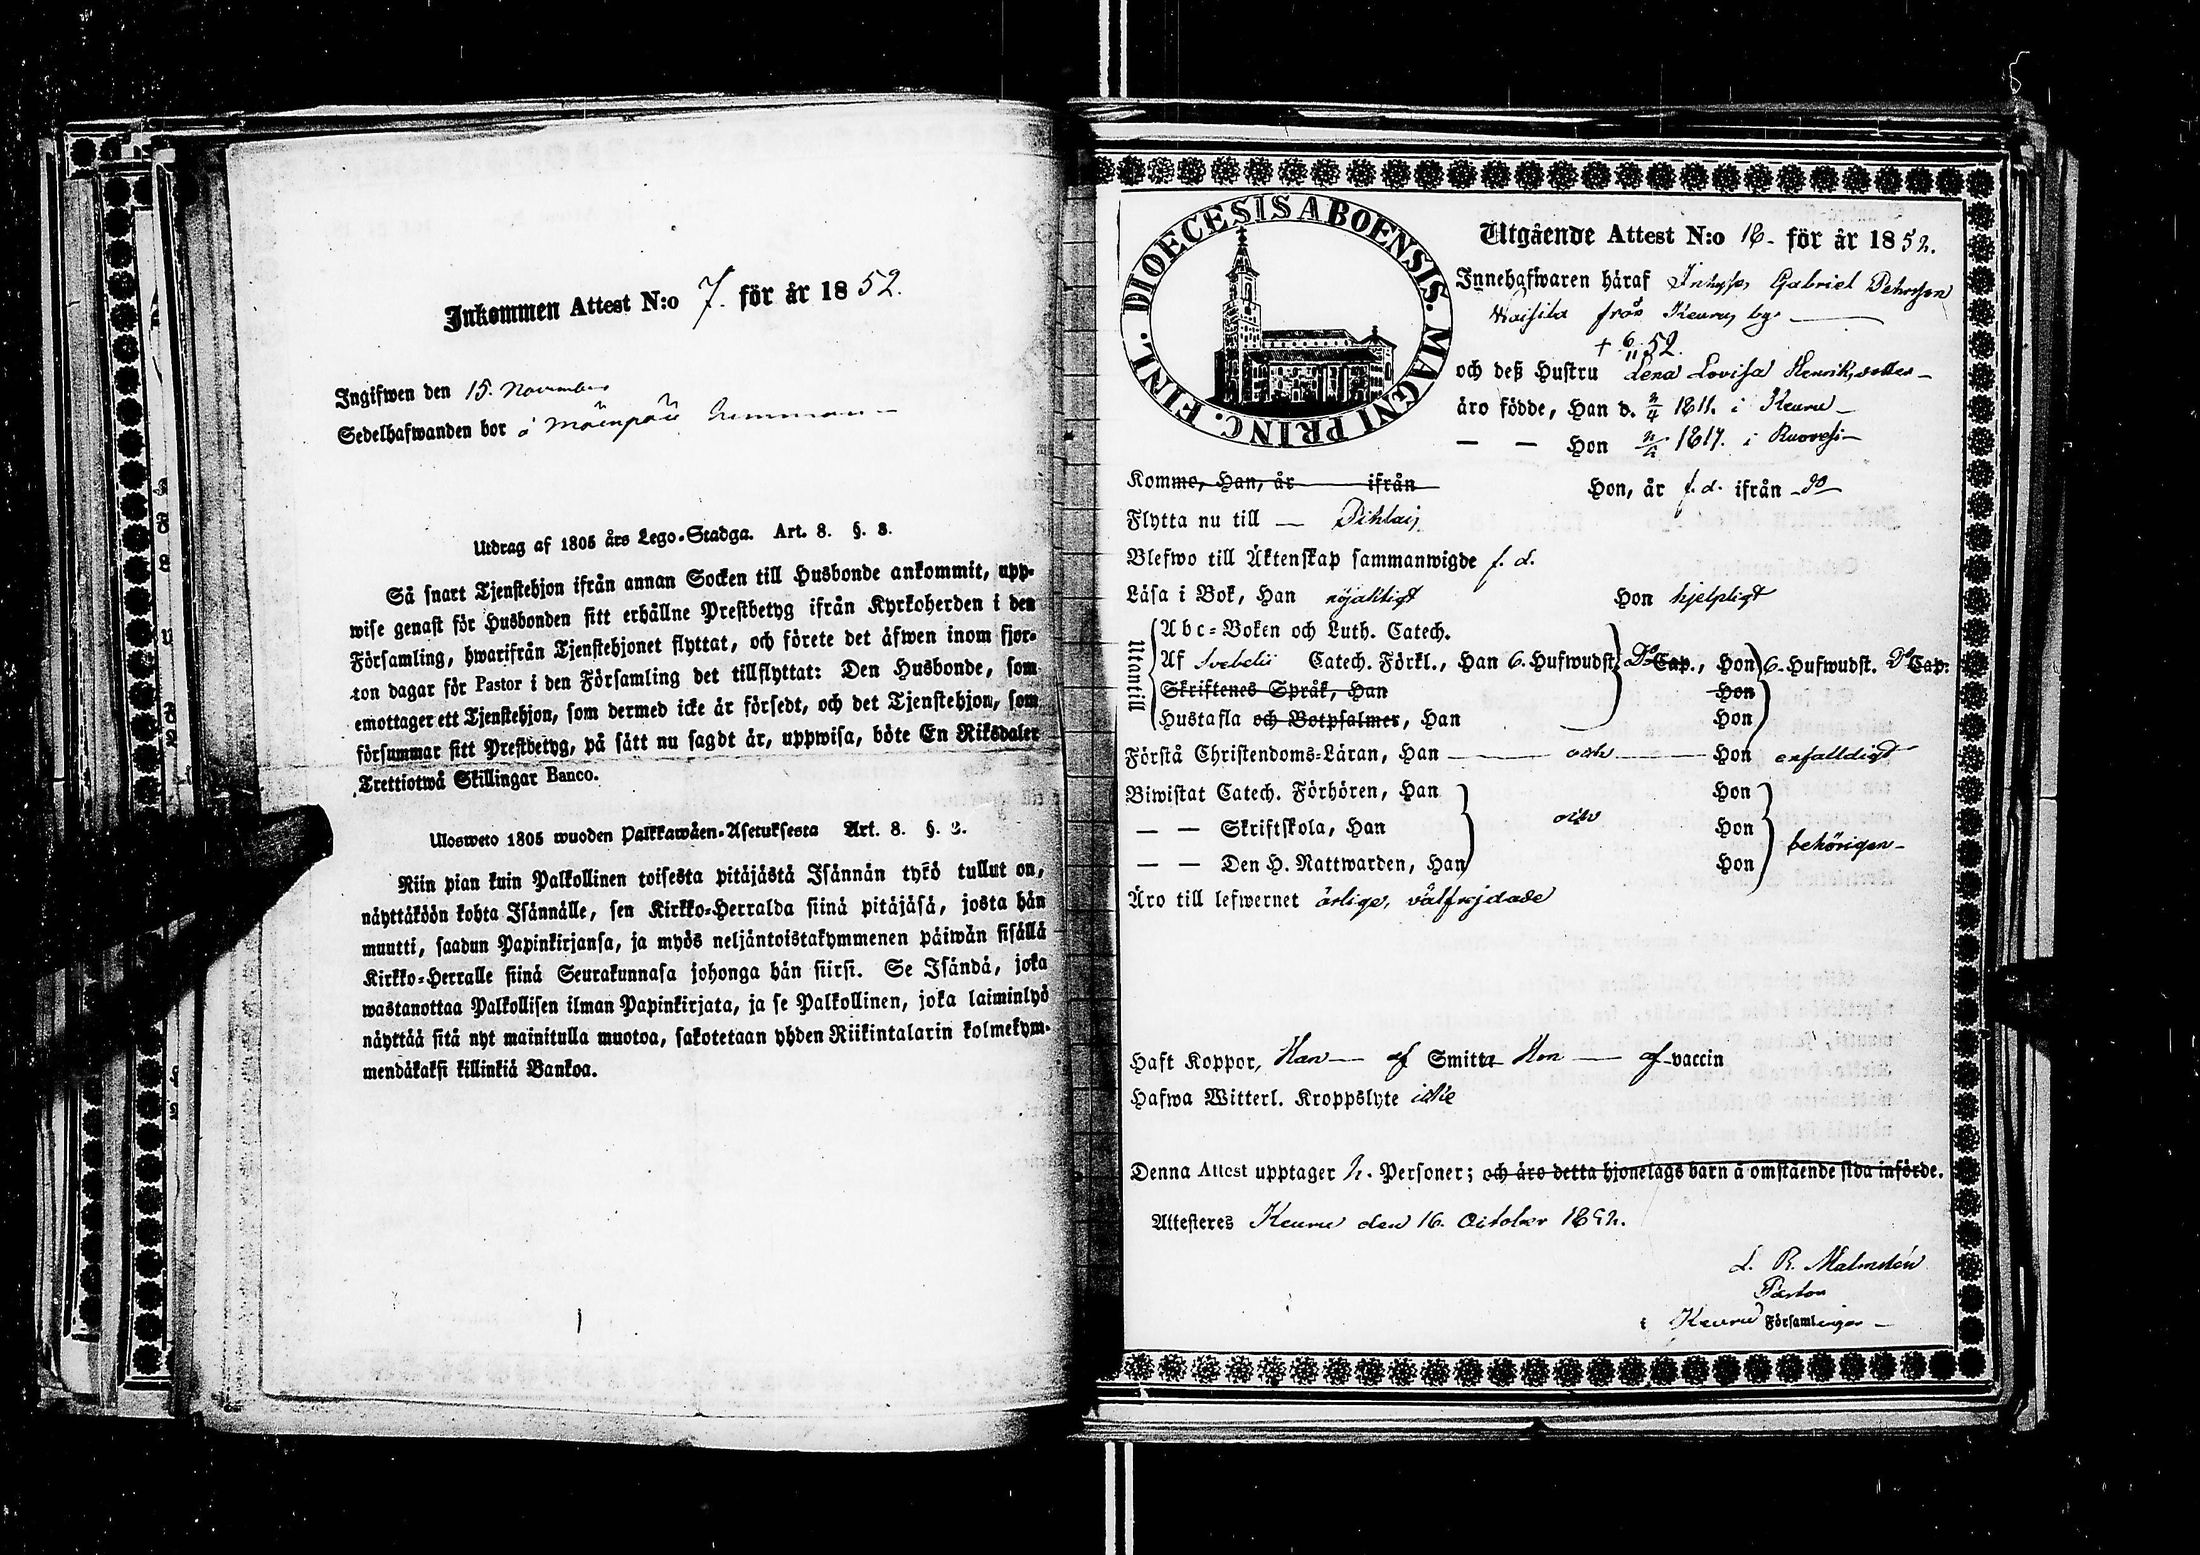 Inkommen Attest N:o 7. för år 1852.
Ingifwen den 15. November
Sedelhafwanden bor i Mäenpää
Utdrag af 1805 års Lego-Stadga. Art. 8. §. 3.
Så snart Tjenstehjon ifrån annan Socken till Husbonde ankommit, upp-
wise genast för Husbonden sitt erhållne Prestbetyg ifrån Kyrkoherden i den
Församling, hwarifrån Tjenstehjonet flyttat, och förete det äfwen inom fjor-
ton dagar för Pastor i den Församling det tillflyttat: Den Husbonde, som
emottager ett Tjenstehjon, som dermed icke är försedt, och det Tjenstehjon, som
försummar sitt Prestbetyg, på sätt nu sagdt är, uppwisa, böte En Riksdaler
Trettiotwå Skillingar Banco.
Ulosweto 1805 wuoden Palkkawäen-Asetuksesta Art. 8. §. 3.
Niin pian kuin Palkollinen toisesta pitäjästä Isännän tykö tullut on,
näyttäköön kohta Isännälle, sen Kirkko-Herralda siinä pitäjäsä, josta hän
muutti, saadun Papinkirjansa, ja myös neljäntoistakymmenen päiwän sisällä
Kirkko-Herralle siinä Seurakunnasa johonga hän siirsi. Se Isändä, joka
wastanottaa Palkollisen ilman Papinkirjata, ja se Palkollinen, joka laiminlyö
näyttää sitä nyt mainitulla muotoa, sakotetaan yhden Riikintalarin kolmekym-
mendäkaksi killinkiä Bankoa.
DIOECESIS ABOENSIS. MAGNI PRINC. FINL.
Utgående Attest N:o 18. för år 1852.
Innehafwaren häraf Inhyses Gabriel Pehrsson
från Keuru by
+ 6/11 52.
och deß Hustru Lena Lovisa Henriksdotter
äro födde, Han d. 3/4 1811. i Keuru
— — Hon 1817. i Ruovesi
Komme, Han, år ifrån Hon, år f. d. ifrån do
Flytta nu till — Pihlaj
Blefwo till Äktenskap sammanwigde f. d.
Läsa i Bok, Han nöjaktigt Hon hjelpligt
Utantill
Abc-Boken och Luth. Catech.
Af Svebelii Catech. Förkl., Han 6. Hufwudst. Do Cap., Hon 6. Hufwudst. Do Cap.
Skriftenes Språk, Han Hon
Hustafla och Botpsalmer, Han Hon
Förstå Christendoms-Läran, Han — och — Hon enfalldigt
Biwistat Catech. Förhören, Han Hon
— — Skriftskola, Han och Hon behörigen
— — Den H. Nattwarden, Han Hon
Äro till lefwernet ärlige, välfrejdade
Haft Koppor, Han — af Smitta Hon — af vaccin
Hafwa Witterl. Kroppslyte icke
Denna Attest upptager 2. Personer; och äro detta hjonelags barn å omstående sida införde.
Attesteres Keuru den 16. October 1852.
L. R. Malmstén
Pastor
i Keuru Församlingar